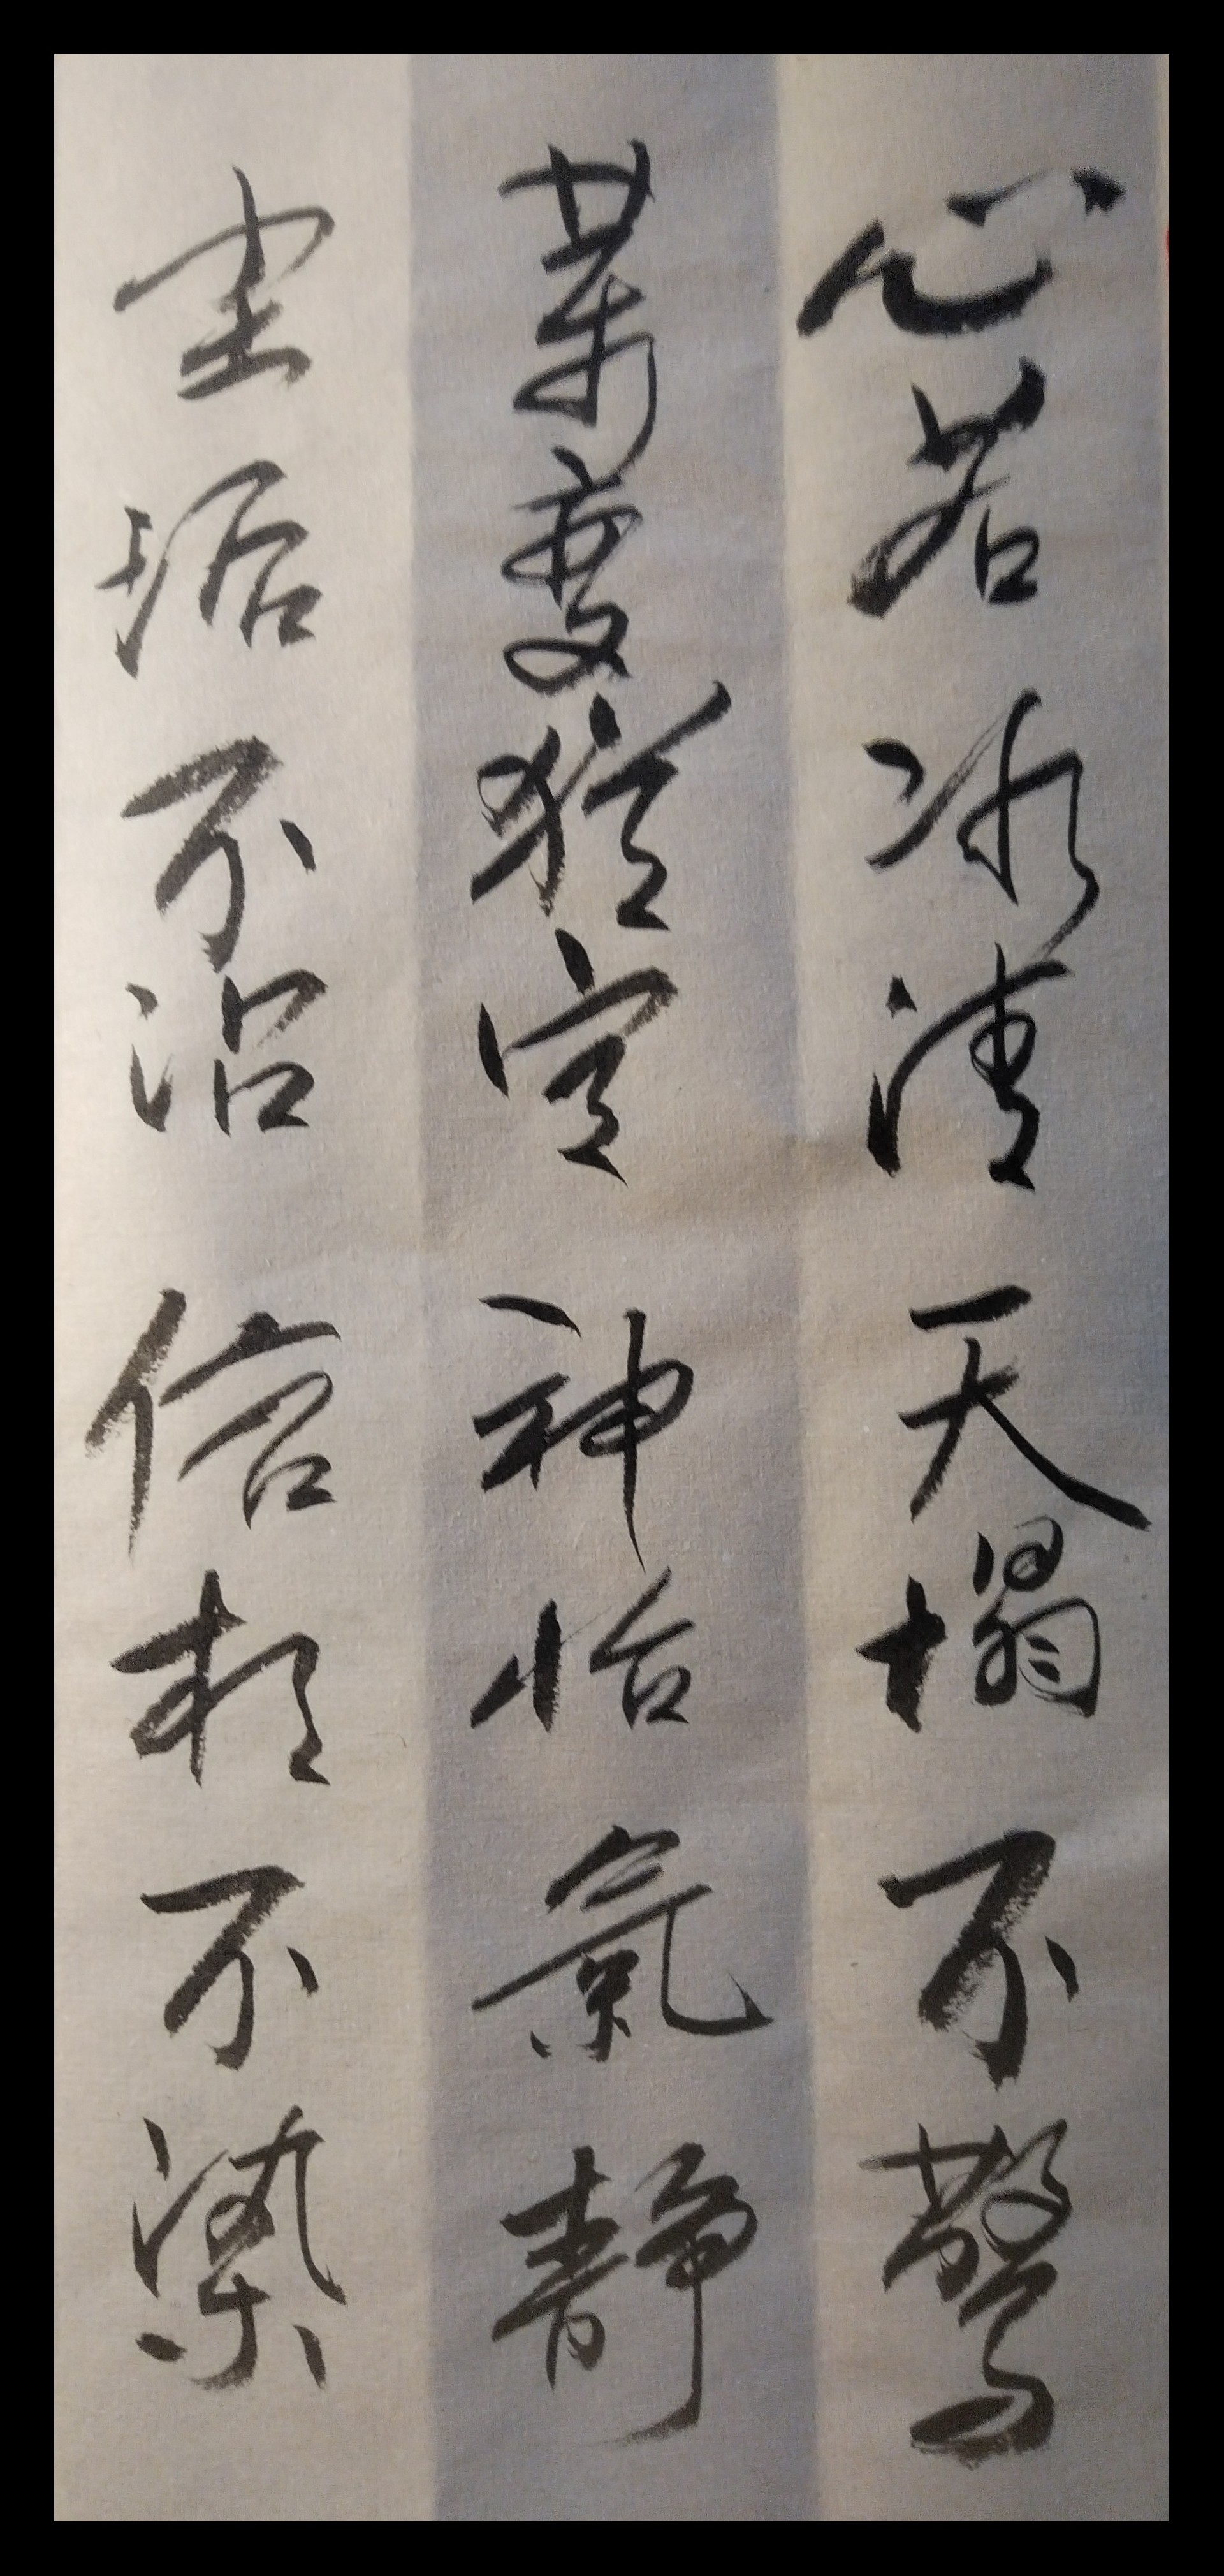 心若冰清天塌不驚
萬變猶定神怡氣靜
塵垢不沾俗相不染